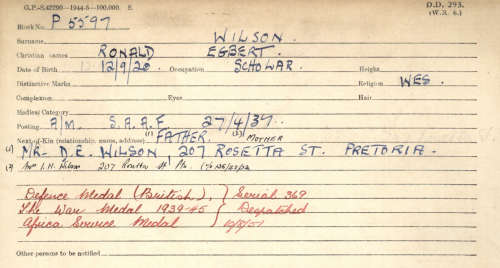 G.P.-S.42790—1944-5—100,000. S. D.D. 293.
(W.R. 6.)
Block No. P 5597
Surname WILSON.
Christian names RONALD EGBERT.
Date of Birth 12/9/20. Occupation SCHOLAR. Height
Distinctive Marks Religion WES.
Complexion Eyes Hair
Medical Category
Posting A/M. S.A.A.F 27/4/37..
Next-of-Kin (relationship, name, address) (1) FATHER. (2) MOTHER
(1) MR. D.E. WILSON, 207 ROSETTA ST. PRETORIA.
(2) Mrs I.H. Wilson 207 Rosetta St Pta.
Defence Medal (British), } Serial 369
The War Medal 1939-45 } Despatched
Africa Service Medal
Other persons to be notified